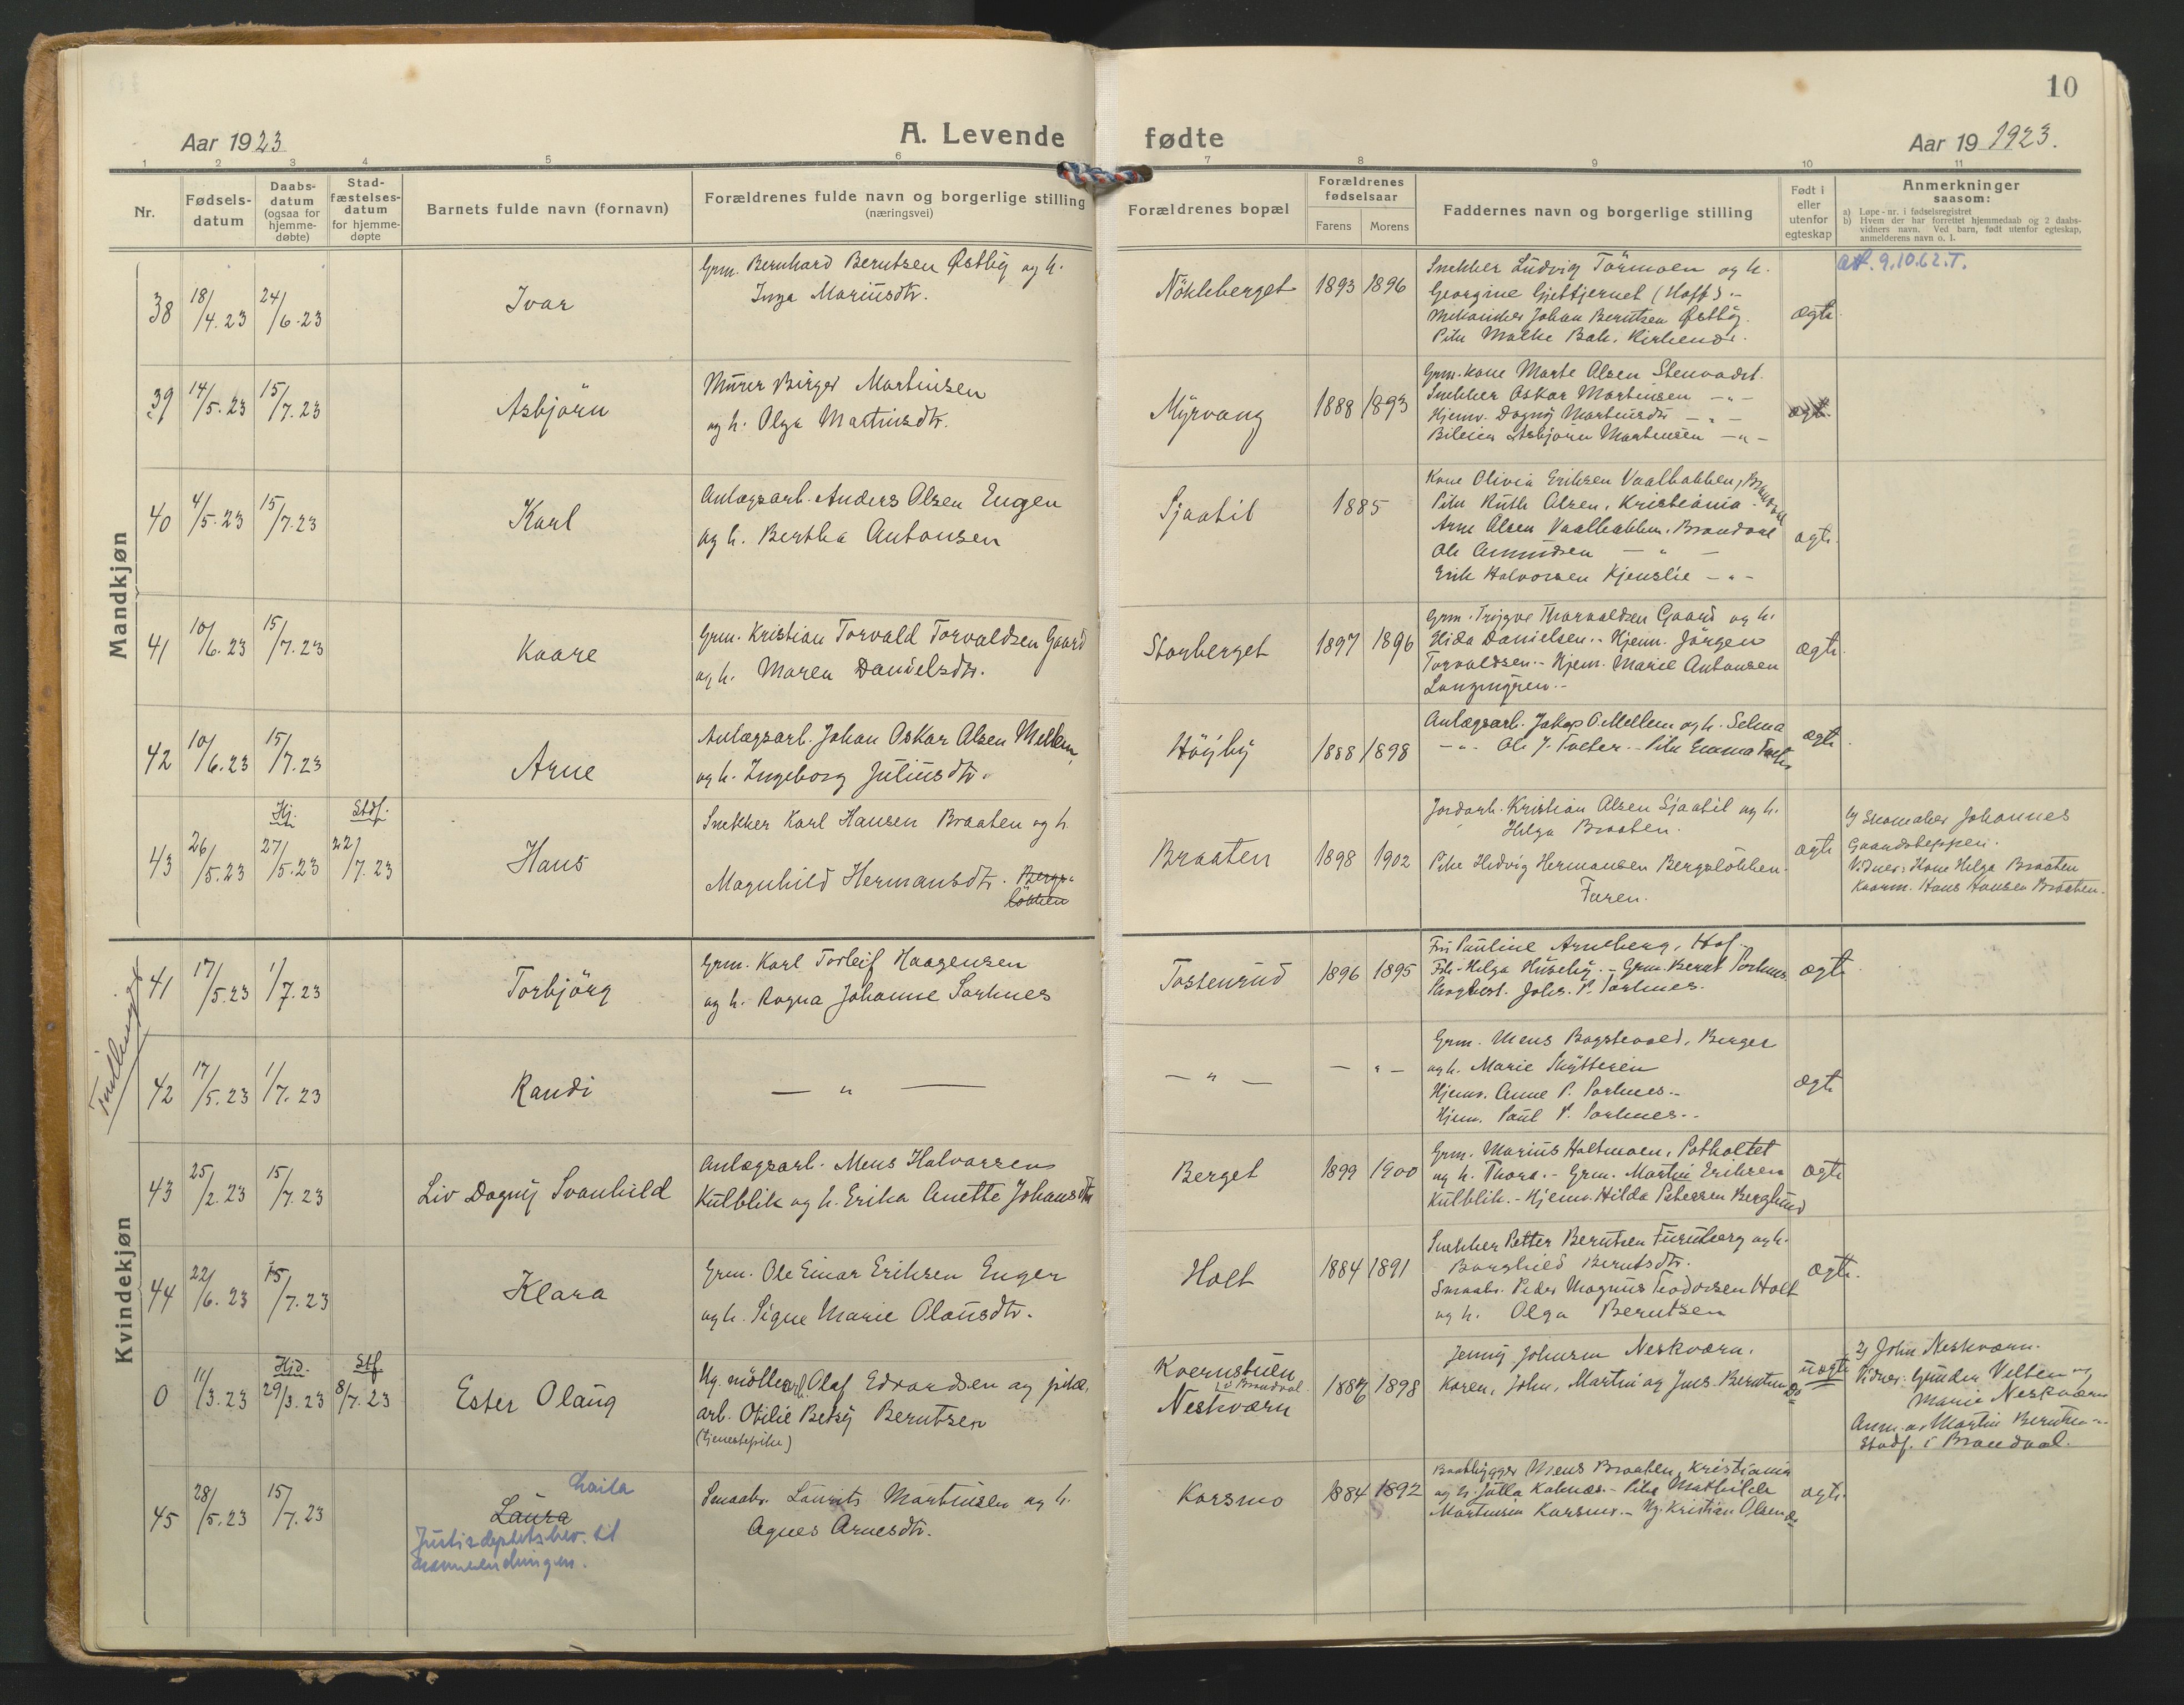 10
Aar 1923
A. Levende fødte
Aar 19 1923.
1 2 3 4 5 6 7 8 9 10 11
Nr.
Fødsels-
datum
Daabs-
datum
(ogsaa for
hjemme-
døbte)
Stad-
fæstelses-
datum
for hjemme-
døpte
Barnets fulde navn (fornavn)
Forældrenes fulde navn og borgerlige stilling
(næringsvei)
Forældrenes bopæl
Forældrenes
fødselsaar
Farens Morens
Faddernes navn og borgerlige stilling
Født i
eller
utenfor
egteskap
Anmerkninger
saasom:
a) Løpe-nr. i fødselsregistret
b) Hvem der har forrettet hjemmedaab og 2 daabs-
vidners navn. Ved barn, født utenfor egteskap,
anmelderens navn o. l.
Mandkjøn
38 18/4.23 24/6.23 Ivar
Grm. Bernhard Berntsen Østby og h.
Inga Mariusdtr.
Nökleberget 1893 1896
Snekker Ludvig Törmoen og h.
Georgine Gjettjernet (Hoff).-
Mekaniker Johan Berntsen Østby.
Pike Malke Bak. Kirkend.
ægte.
att. 9.10.62.T.
39 14/5.23 15/7.23 Asbjörn
Murer Birger Martinsen
og h. Olga Martinsdtr.
Myrvang 1888 1893
Grm. kone Marte Olsen Stenvadet.
Snekker Oskar Martinsen -"-
Hjemv. Dagny Martinsdtr -"-
Asbjörn Martinsen -"-
ægt.
40 4/5.23 15/7.23 Karl
Anlægsarb. Anders Olsen Eugen
og h. Bertha Antonsen
Sjaatil 1885
Kone Olivia Eriksen Vaalbakken, Brandval
Pike Ruth Olsen, Kristiania.
Arne Olsen Vaalbakken, Brandval
Ole Amundsen - " -
Erik Halvorsen Kjenslie -"-
ægte.
41 10/6.23 15/7.23 Kaare
Grm. Kristian Torvald Torvaldsen Gaard
og h. Maren Danielsdtr.
Storberget 1897 1896
Grm. Trygve Thorvaldsen Gaard og h.
Hilda Danielsen.- Hjemv. Jörgen
Torvaldsen.- Hjem. Marie Antonsen
Langmyren.-
ægte.
42 10/6.23 15/7.23 Arne
Anlægsarb. Johan Oskar Olsen Mellem,
og h. Ingeborg Juliusdtr.
Höyby 1888 1898
Anlægsarb. Jakop O. Mellem og h. Selma
-"- Ole J. Tveter.- Pike Emma Tveter
ægte.
43 26/5.23 Hj. 27/5.23 Stdf. 22/7.23 Hans
Snekker Karl Hansen Braaten og h.
Magnhild Hermansdtr. Bergs-
lökken
Braaten 1898 1902
Jordarb. Kristian Olsen Sjaatil og h.
Helga Braaten.
Pike Hedvig Hermansen Bergslökken.
Faren.
ægte
Skomaker Johannes
Graandsteppen.
Vidner: Kone Helga Braaten
Kaarm. Hans Hansen Braaten.
Kvindekjøn
Tvillinger
41 17/5.23 1/7.23 Torbjörg
Grm. Karl Torleif Haagensen
og h. Ragna Johanne Sorknes
Tostenrud 1896 1895
Fru Pauline Arneberg, Hof.
Frk. Helga Huseby.- Grm. Bernt Sorknes.
Skogbest. Johs. P. Sorknes.
ægte
42 17/5.23 1/7.23 Randi
- " -
- " - - " -
Grm. Mens Bogstevold, Berger
og h. Marie Skytteren
Hjemv. Anne P. Sorknes.-
Hjem. Paul P. Sorknes.-
ægte
43 25/2.23 15/7.23 Liv Dagny Svanhild
Anlægsarb. Mens Halvorsen
Kulblik og h. Erika Anette Johansdtr
Berget 1899 1900
Grm. Marius Holtmoen, Potholtet
og h. Thora.- Grm. Martin Eriksen
Kulblik.- Hjemv. Hilda Petersen Berglund
ægte
44 22/6.23 15/7.23 Klara
Grm. Ole Einar Eriksen Enger
og h. Signe Marie Olausdtr.
Holt 1884 1891
Snekker Petter Berntsen Furuberg og h.
Borghild Berntsdtr.
Smaabr. Peder Magnus Teodorsen Holt
og h. Olga Berntsen
ægte.
0 11/3.23 Hjd. 29/3.23 Stf. 8/7.23 Ester Olaug
Ug. möllearb. Olaf Edvardsen og pike,
arb. Otilie Betsy Berntsen
(tjenestepike)
Kvernstuen
i Brandval
Neskværn 1887 1898
Jenny Johnsen Neskværn.
Karen, John, Martin og Jens. Berntsen do
uægte
John Neskværn.
Vidner. Gunder Velten og
Marie Neskværn
Anm. av Martin Berntsen
Stadf. i Brandval.
45 28/5.23 15/7.23 Laila
Laura
Justisdeptets bev. til
navneendringen.
Smaabr. Laurits Martinsen og h.
Agnes Arnesdtr.
Korsmo 1884 1892
Mens Braaten, Kristiania
og h. Jutta Kalnæs.- Pike Mathilde
Martinsen Korsmo.- Ug. Kristian Olsen do
ægte.